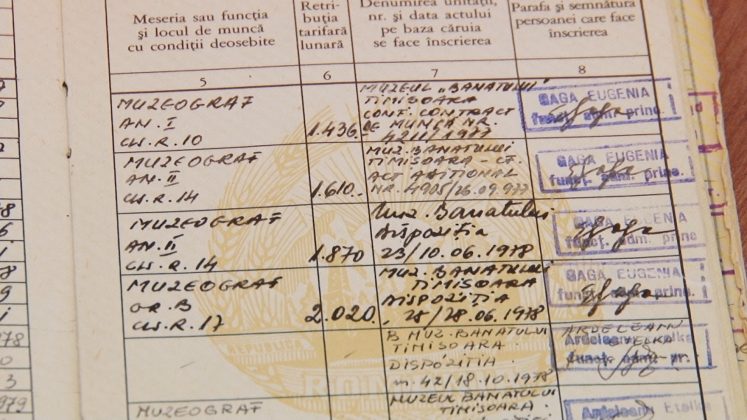 Meseria sau funcția
și locul de muncă
cu condiții deosebite
Retri-
buția
tarifară
lunară
Denumirea unității,
nr. și data actului
pe baza căruia
se face înscrierea
Parafa și semnătura
persoanei care face
înscrierea
5
6
7
8
MUZEOGRAF
AN. I
CLS.R. 10
1.436
MUZEUL "BANATULUI"
TIMIȘOARA
CONF. CONTRACT
DE MUNCĂ NR.
GAGA EUGENIA
funcț. adm. princ.
MUZEOGRAF
AN. II
CLS.R. 14
1.610
MUZ. BANATULUI
TIMIȘOARA - CF.
ACT ADIȚIONAL
NR. 4905/26.09.977
GAGA EUGENIA
funcț. adm. princ.
MUZEOGRAF
AN. II
CLS.R. 14
1.870
Muz. Banatului
Dispoziția
23/10.06.1978
GAGA EUGENIA
funcț. adm. princ.
MUZEOGRAF
GR. B
CLS.R. 17
2.020
MUZ. BANATULUI
TIMIȘOARA
DISPOZIȚIA
28/28.06.1978
GAGA EUGENIA
funcț. adm. princ.
MUZ. BANATULUI
TIMIȘOARA
DISPOZIȚIA
nr. 42/18.10.1978
ARDELEAN
Ardelean Etelka
funcț. adm. pr.
MUZEOGRAF
MUZEUL BANATULUI
TIMIȘOARA
Ardelean Etelka
REPUBLICA